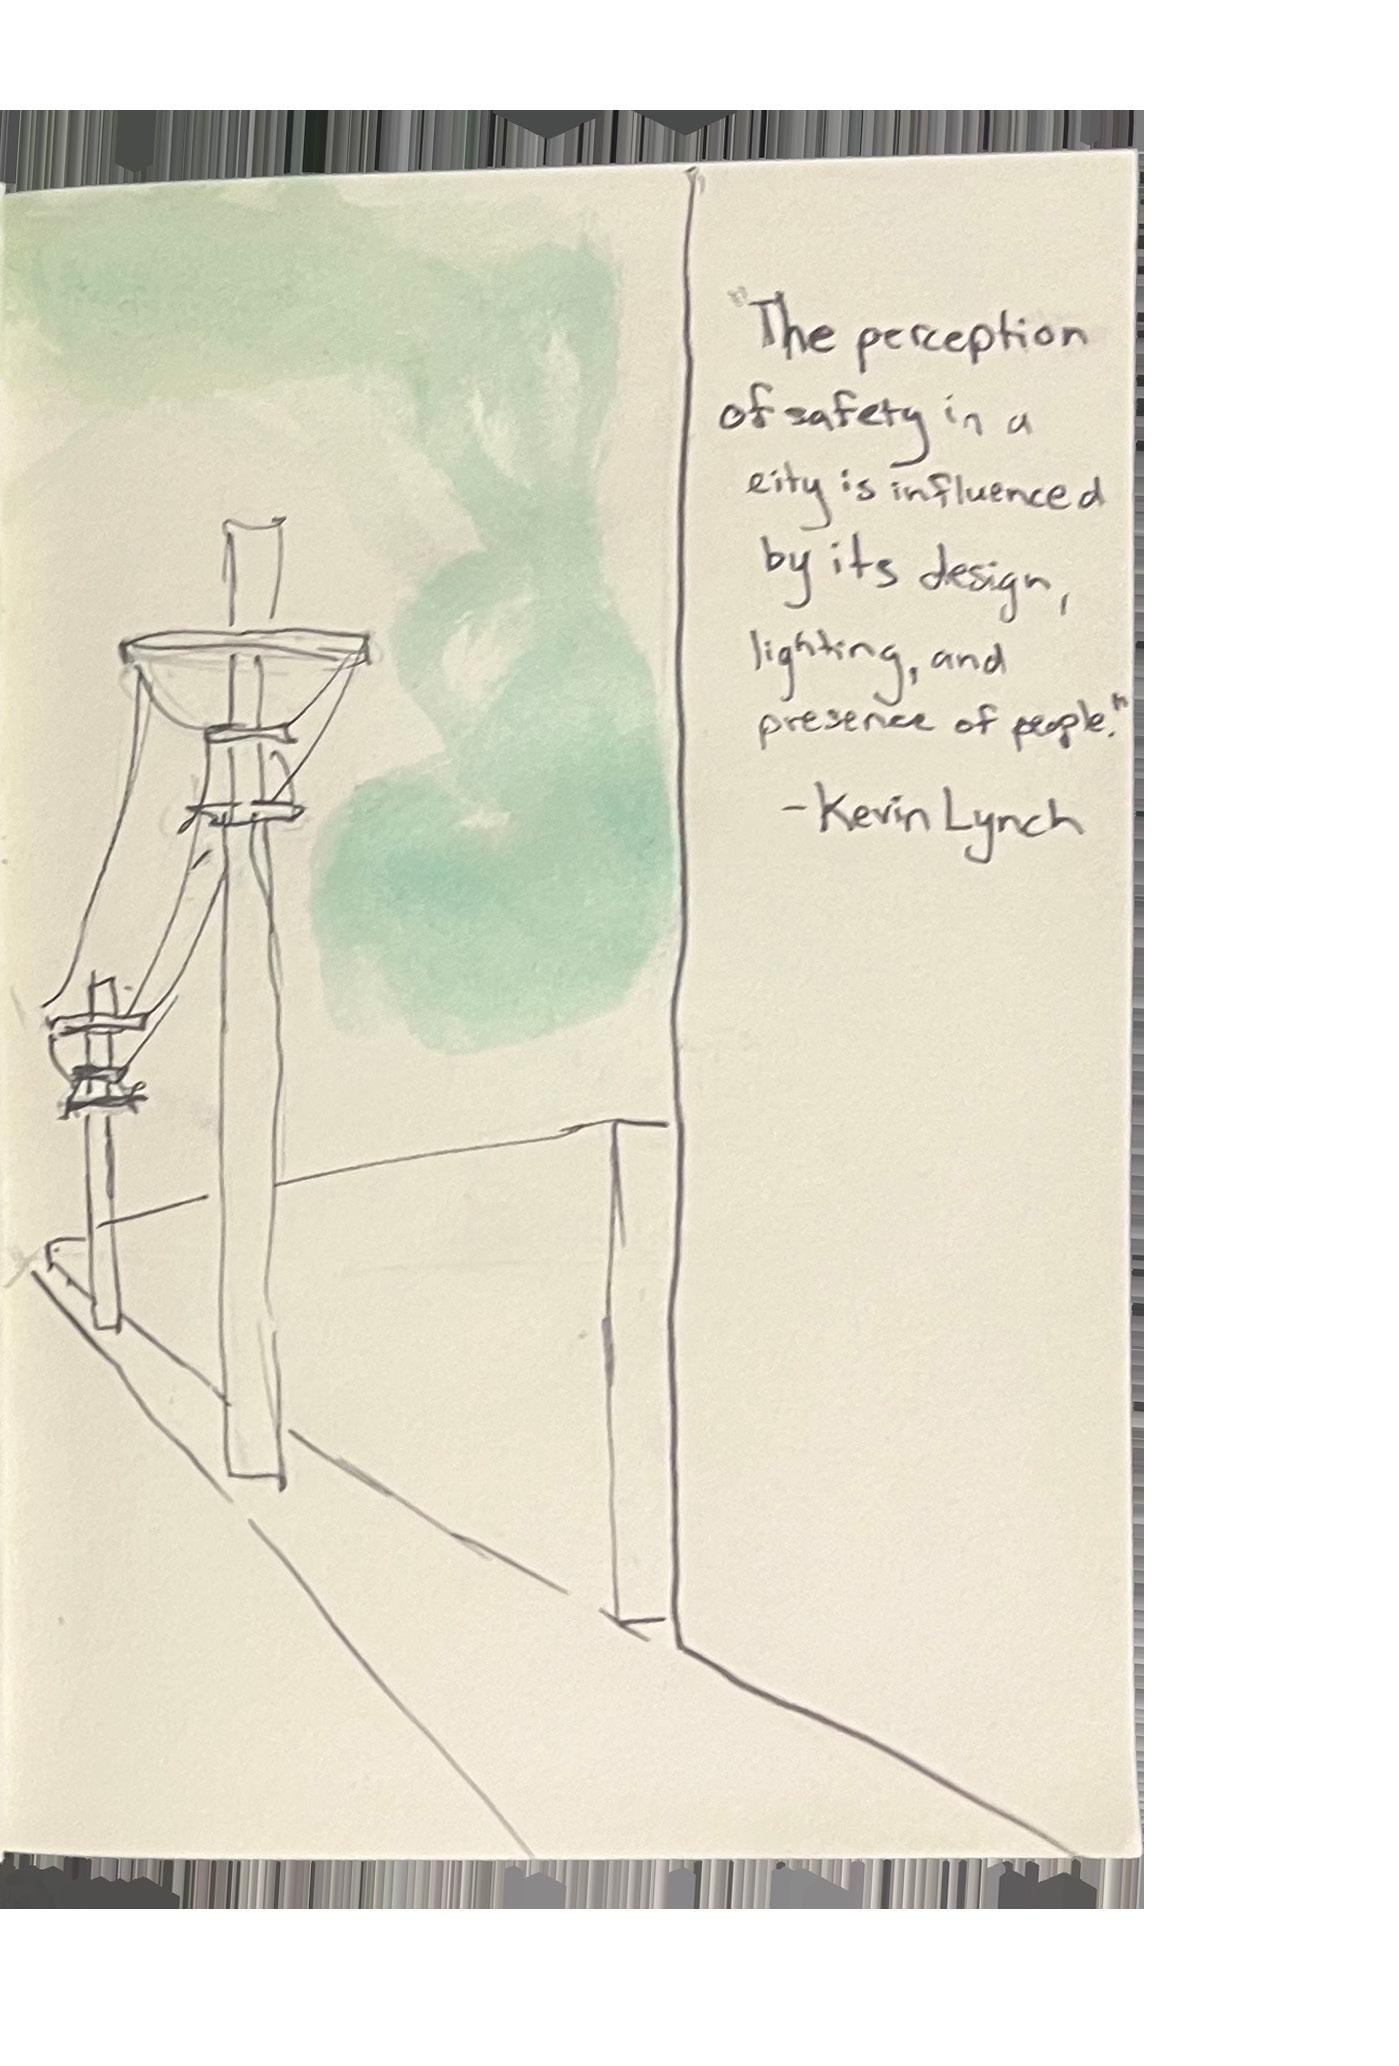 "The perception
of safety in a
city is influenced
by its design,
lighting, and
presence of people."
-Kevin Lynch